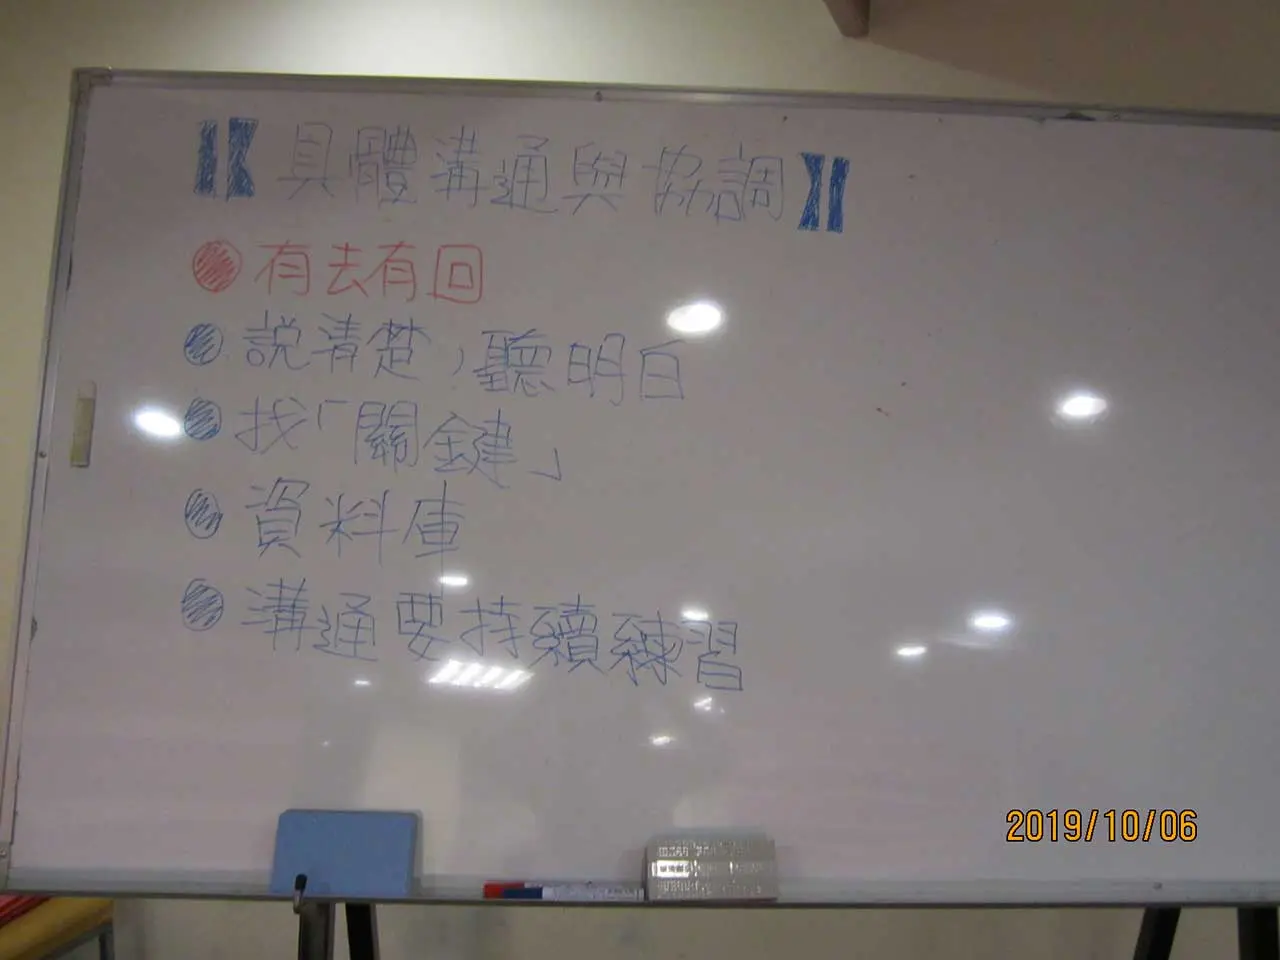 【具體溝通與協調】
●有去有回
●説清楚,聽明白
●找「關鍵」
●資料庫
●溝通要持續練習
2019/10/06